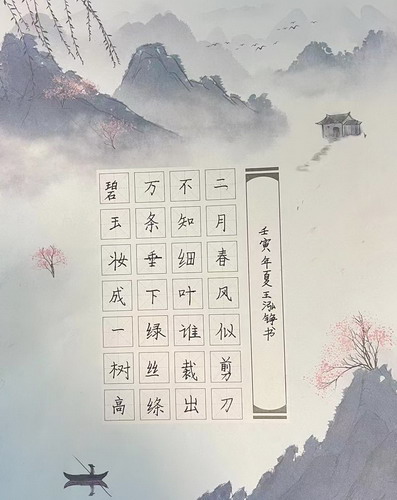 碧玉妆成一树高
万条垂下绿丝绦
不知细叶谁裁出
二月春风似剪刀
壬寅年夏王泓铮书